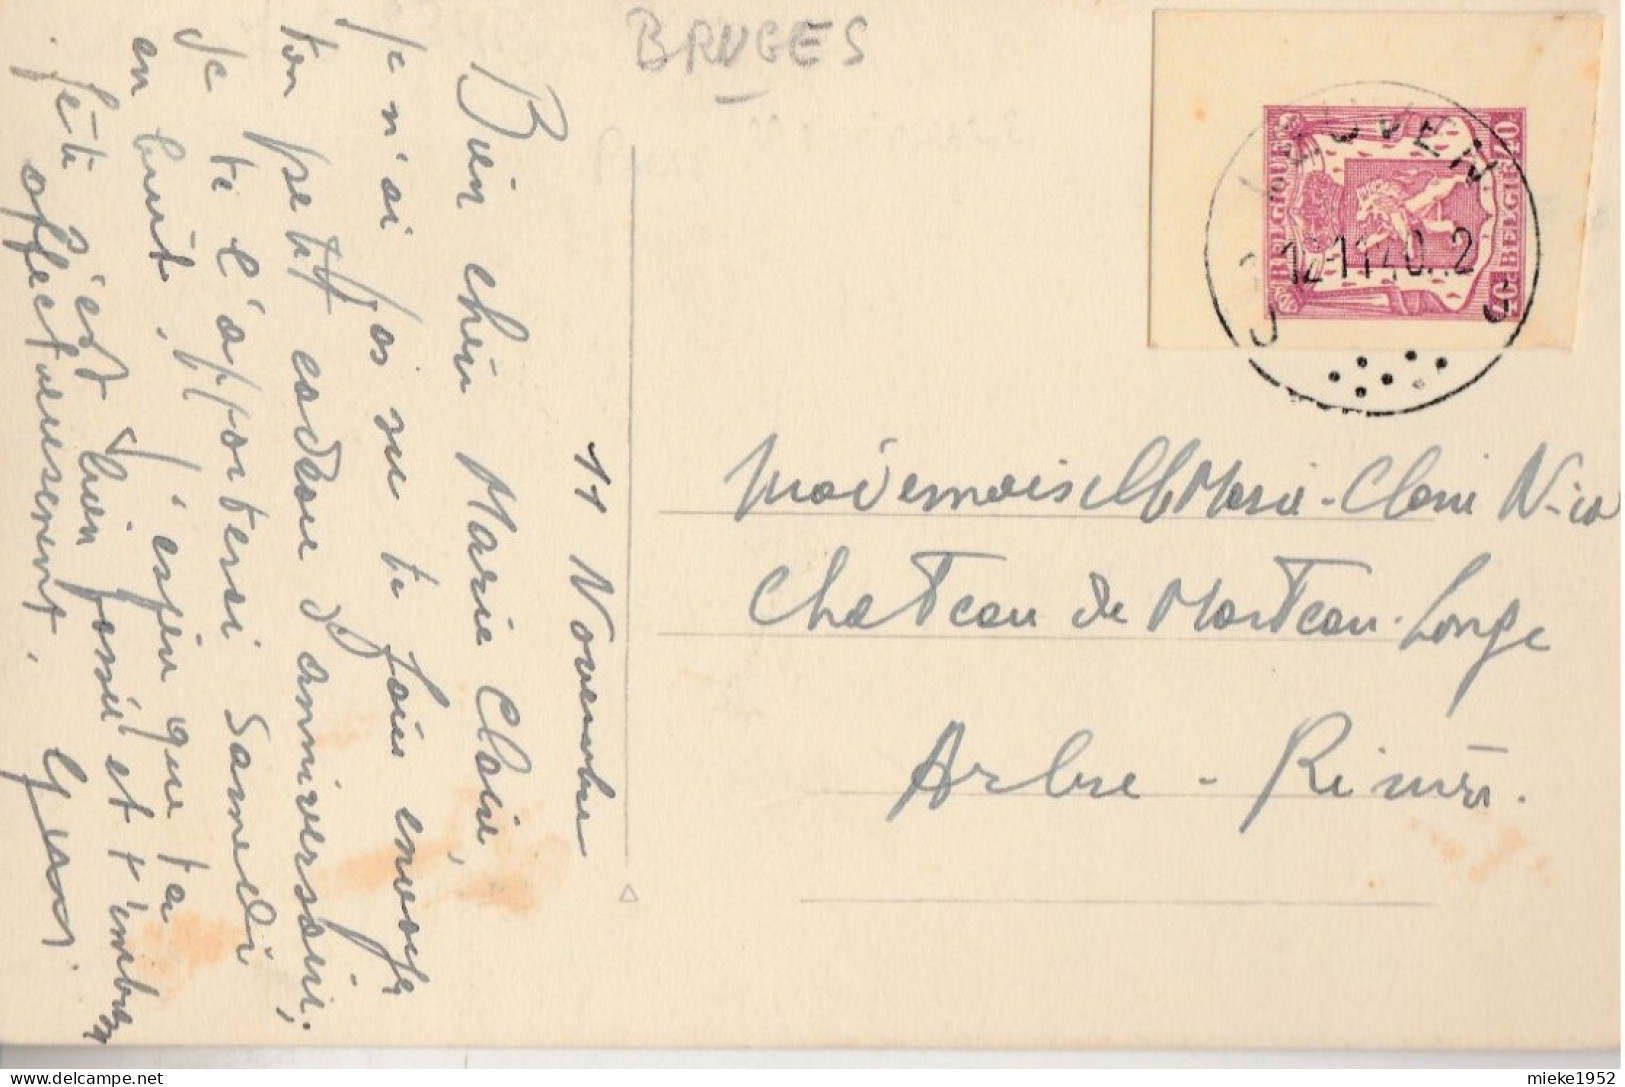 BRUGES
11 Novembre
Bien chère Marie Claire,
Je n'ai pas su te faire envoyer
ton petit cadeau d'anniversaire,
Je te l'apporterai Samedi
en huit, j'espère que ta
fête s'est bien passée et t'embrasse
affectueusement.
BELGIQUE BELGIE
40 40
12 11 40
Mademoiselle Marie-Claire
Chateau de Marteau-Longe
Arbre - Rivière.
mieke1952